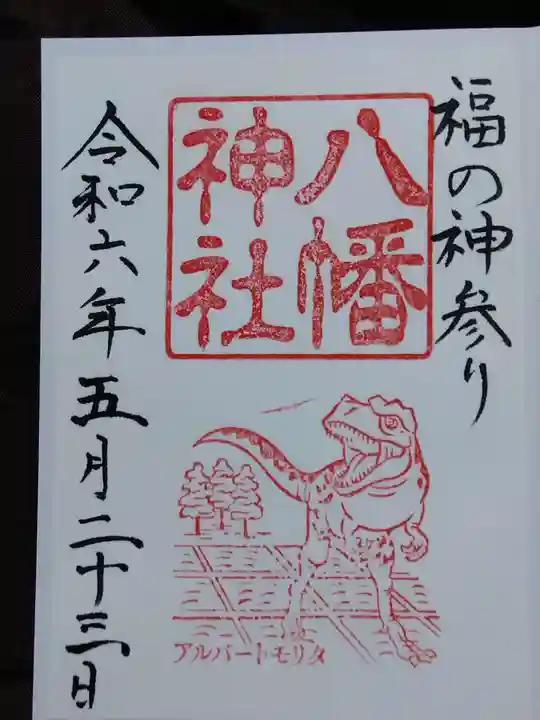 福の神参り
八幡
神社
アルバートモリタ
令和六年五月二十三日